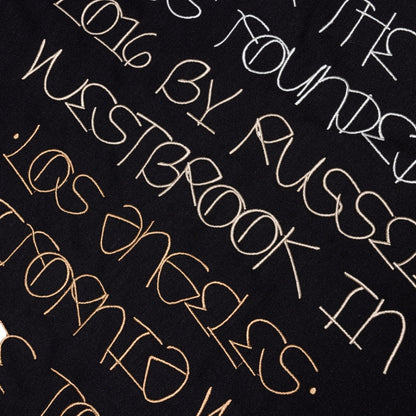 THE
S FOUNDED
2016 BY RUSSEL
WESTBROOK IN
. LOS ANGELES.
IFORNIA W
TO